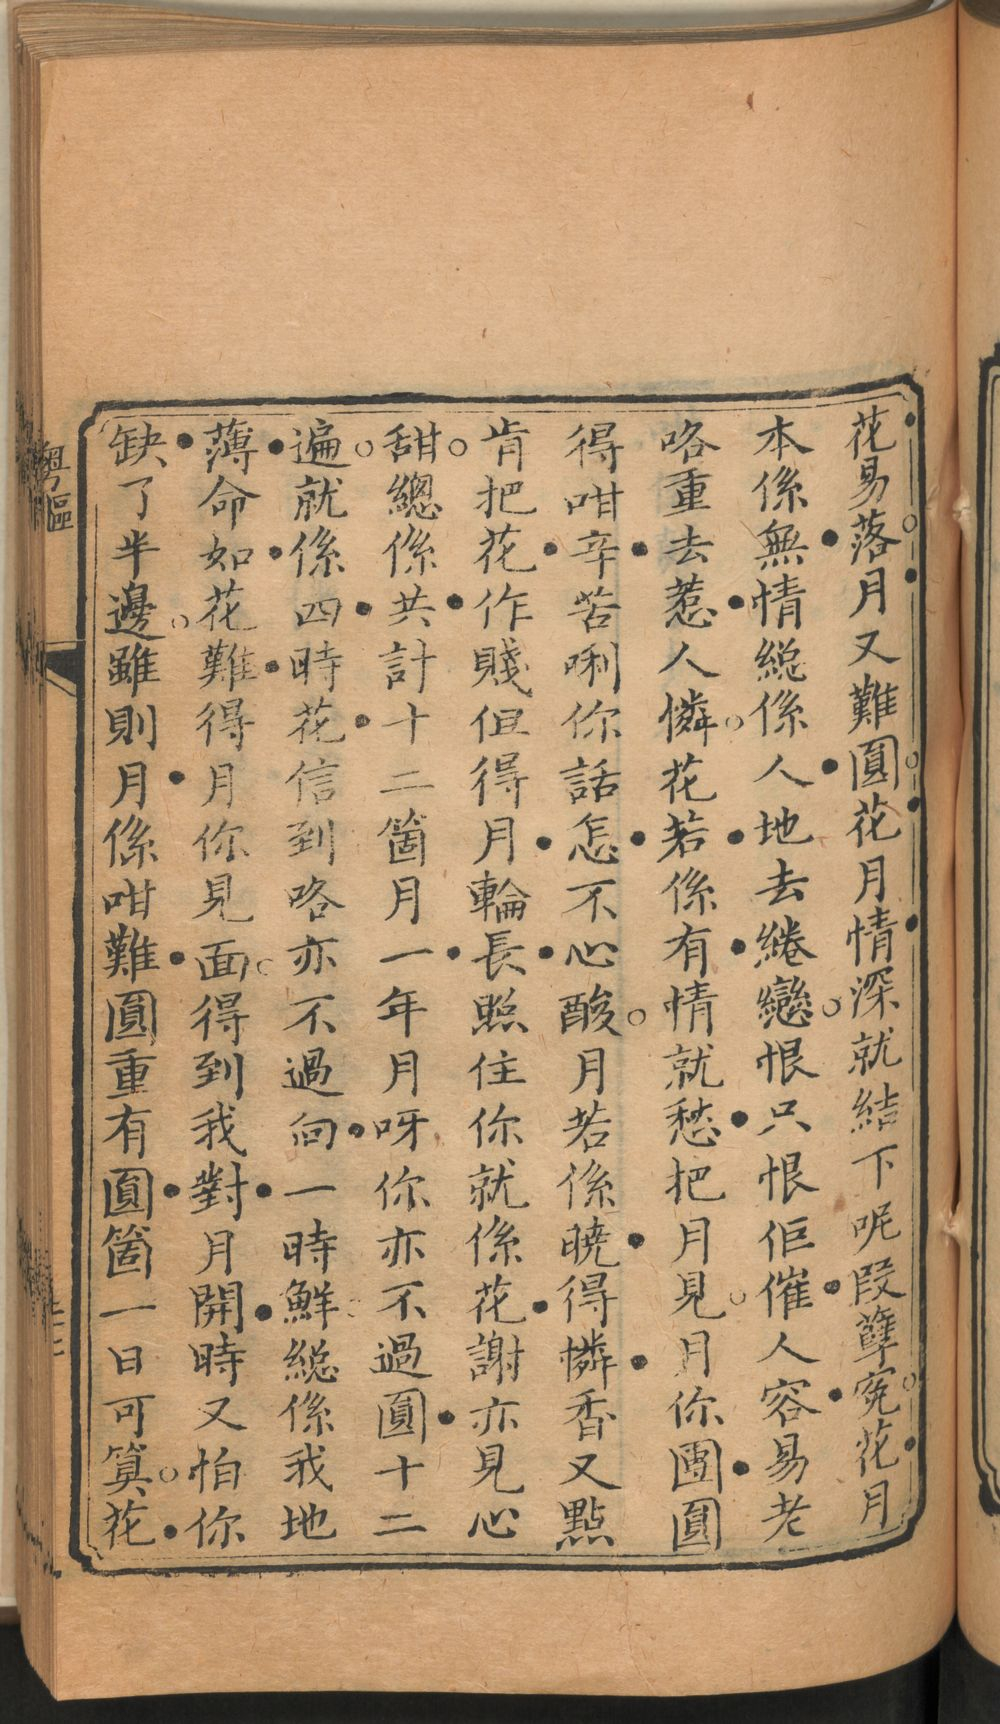 花易落月又難圓花月情深就結下呢叚孽寃花月
本係無情総係人地去綣戀恨只恨佢催人容易老
咯重去惹人憐花若係有情就愁把月見月你團圓
得咁辛苦唎你話怎不心酸月若係曉得憐香又點
肯把花作賤但得月輪長照住你就係花謝亦見心
甜總係共計十二箇月一年月呀你亦不過圓十二
遍就係四時花信到咯亦不過向一時鮮総係我地
薄命如花難得月你見面得到我對月開時又怕你
缺了半邊雖則月係咁難圓重有圓箇一日可筭花
粵謳